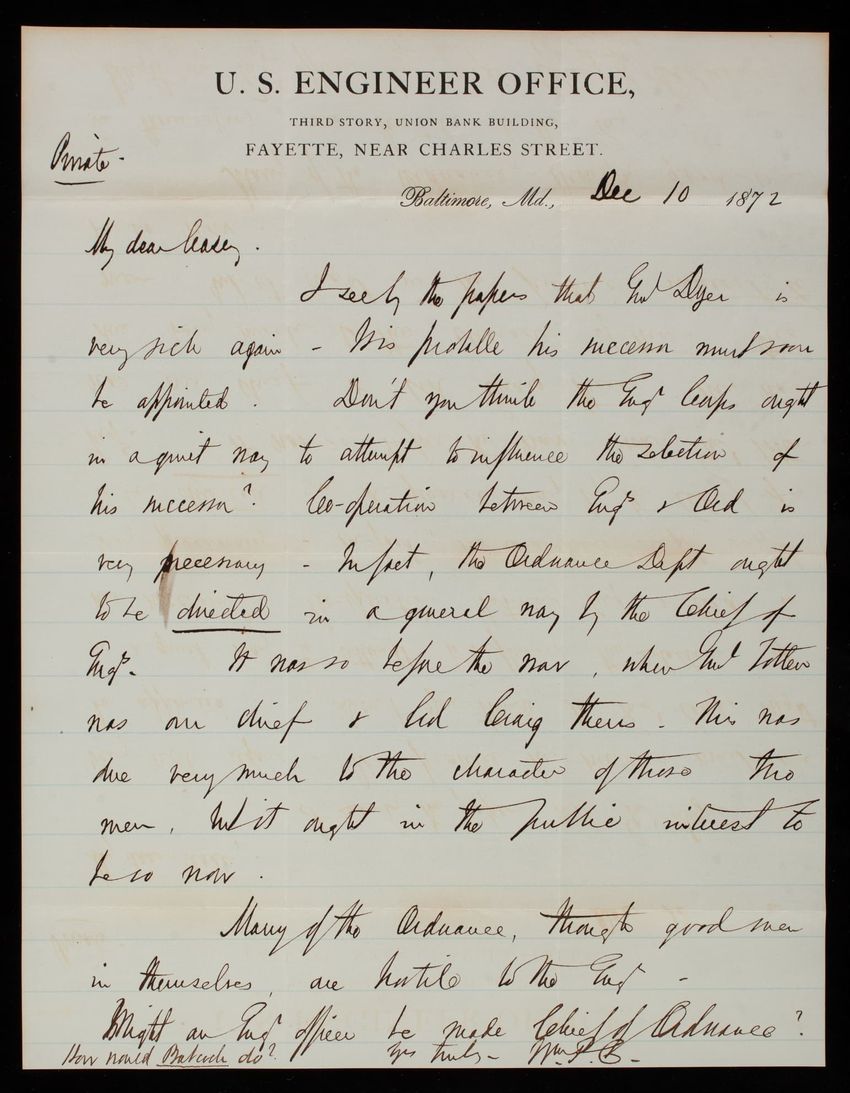 U. S. ENGINEER OFFICE,
THIRD STORY, UNION BANK BUILDING,
FAYETTE, NEAR CHARLES STREET.
Private -
Baltimore, Md., Dec 10 1872
My dear Casey.
I see by the papers that Genl Dyer is
very sick again - It is probable his successor must soon
be appointed. Don't you think the Engr Corps ought
in a quiet way to attempt to influence the selection of
his successor? Co-operation between Engrs & Ord is
very necessary - In fact, the Ordnance Dept ought
to be directed in a general way by the Chief of
Engrs. It was so before the war, when Genl Totten
was our chief & Col Craig theirs. This was
due very much to the character of those two
men, but it ought in the public interest to
be so now.
Many of the Ordnance, though good men
in themselves, are hostile to the Engr -
Might an Engr officer be made Chief of Ordnance?
How would Babcock do? Yrs truly - Wm. P. C.